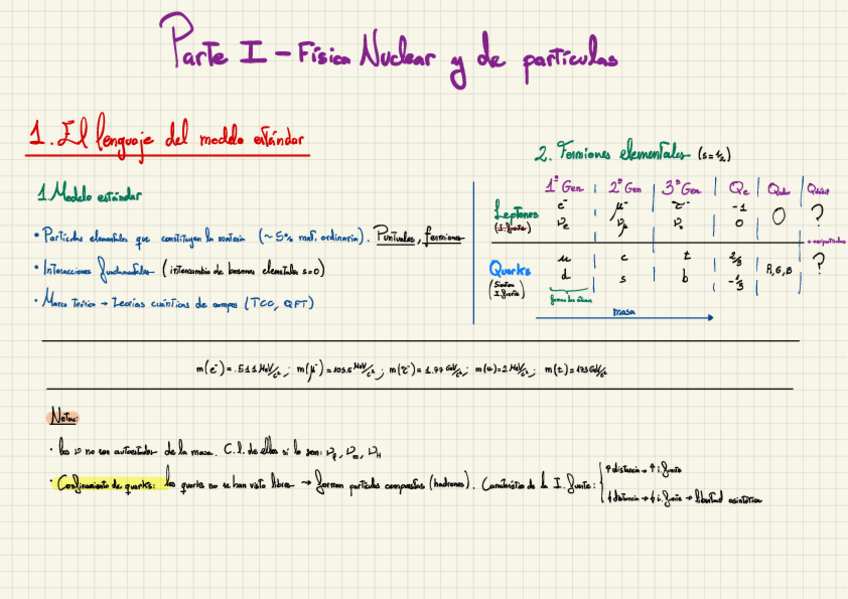 Parte I - Física Nuclear y de partículas
1. El lenguaje del modelo estándar
1. Modelo estándar
• Partículas elementales que constituyen la materia (~5% mat. ordinaria). Puntuales, fermiones
• Interacciones fundamentales (intercambio de bosones elementales s=0)
• Marco teórico → Teorías cuánticas de campos (TCC, QFT)
2. Fermiones elementales (s=1/2)
1ª Gen 2ª Gen 3ª Gen Qe
Leptones e⁻ μ⁻ τ⁻ -1 0 ?
νe νμ 0
+ antipartículas
Quarks u c t 2/3 R,G,B ?
d s b -1/3
masa
m(e⁻)=.511 MeV/c²; m(μ⁻)=105.6 MeV/c²; m(τ⁻)=1.77 GeV/c²; m(u)=2 MeV/c²; m(t)=173 GeV/c²
Notas:
• Los ν no son autoestados de la masa. C.l. de ellos si lo son:
• Confinamiento de quarks: los quarks no se han visto libres → forman partículas compuestas (hadrones). Característica de la I. fuerte:
↑ distancia → ↑ i. fuerte
↓ distancia → ↓ i. fuerte → libertad asintótica